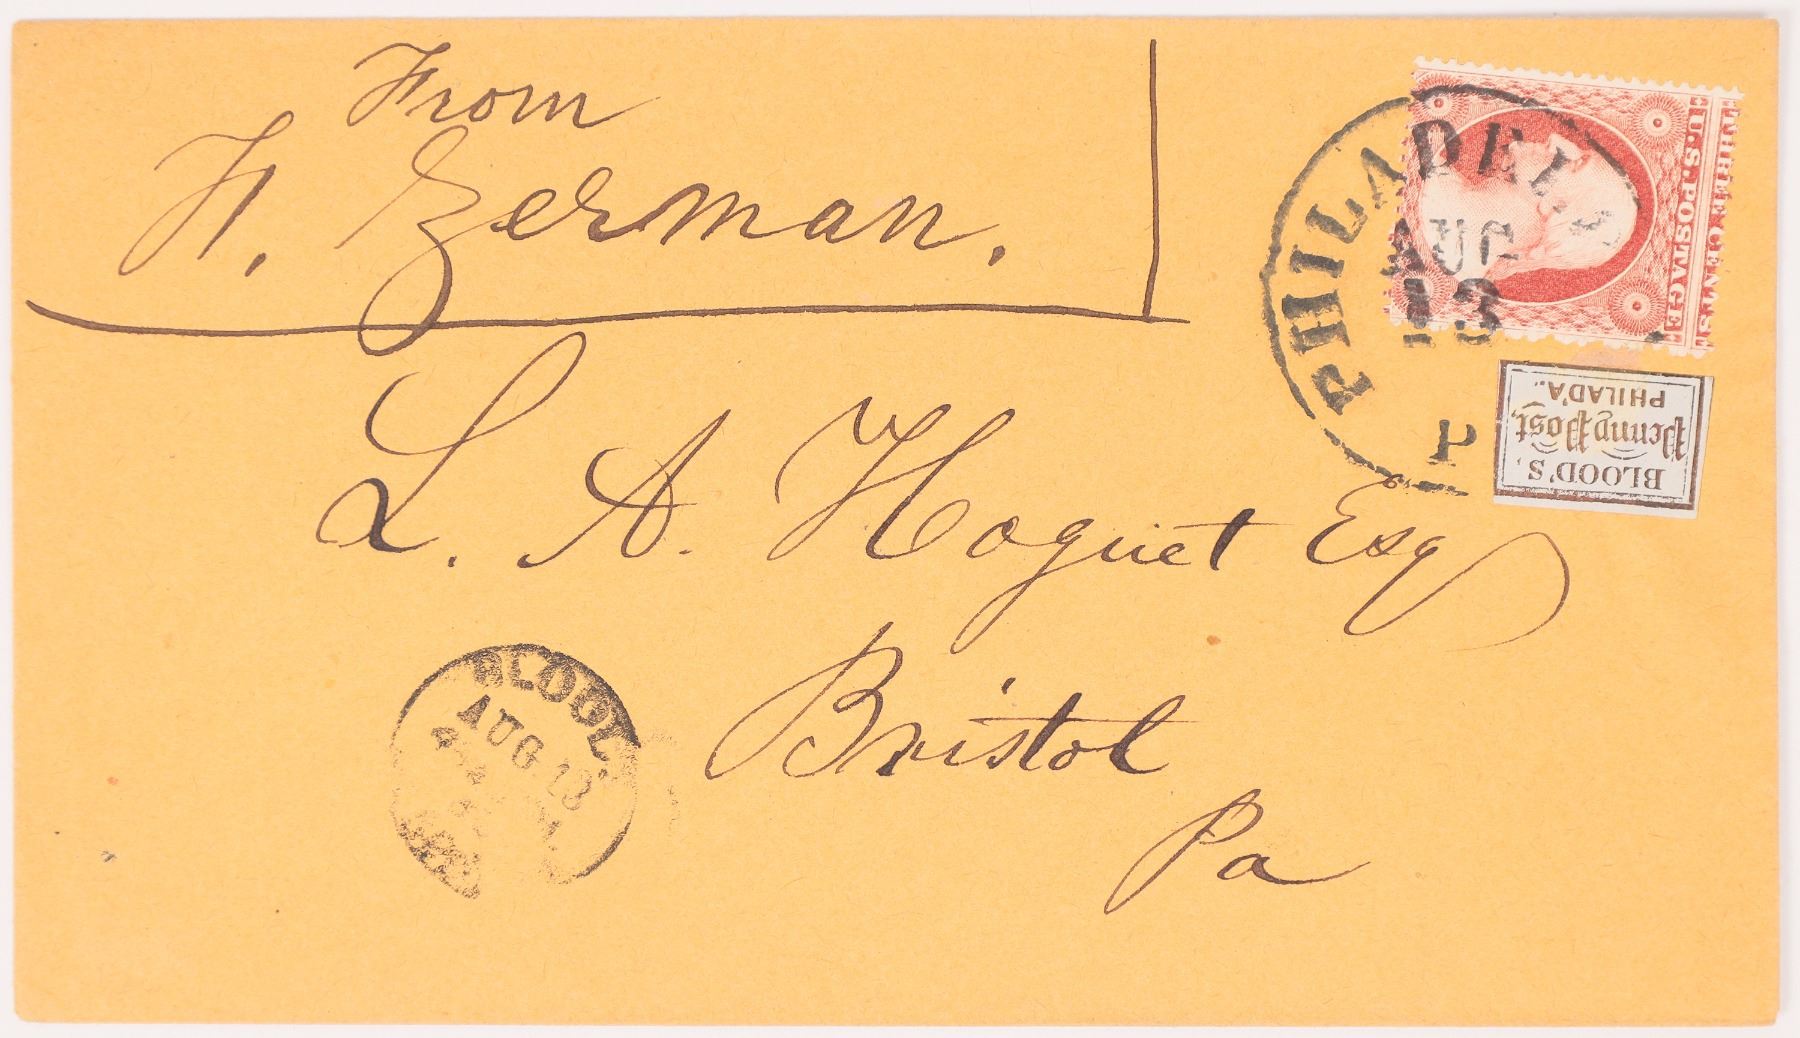 From
H. Zerman.
L. A. Hoguet Esq
Bristol
Pa
PHILADEL
AUG
13
P
U.S. POSTAGE
THREE CENTS
BLOOD'S
Penny Post,
PHILAD'A.
BLOOD
AUG 13